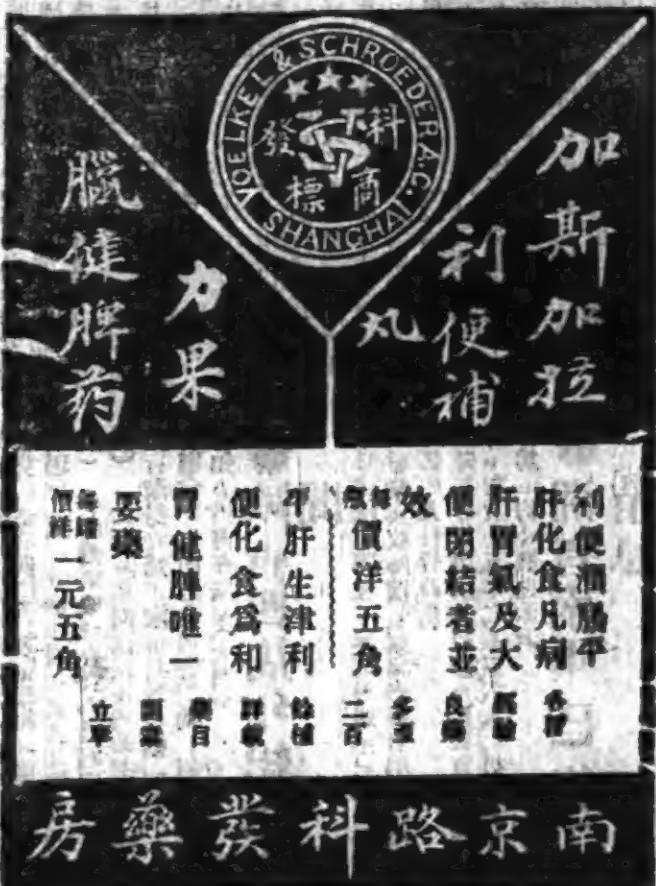 VOELKEL & SCHROEDER A.G.
SHANGHAI
科發
商標
加斯加拉
利便補
丸
力果
臟健脾药
利便潤腸平
肝化食凡病
肝胃氣及大
便閉結者並
效
每瓶價洋五角
平肝生津利
便化食爲和
胃健脾唯一
要藥
每罐價洋一元五角
經驗
良藥
多至
二百
餘種
詳載
藥目
函索
立寄
南京路科發藥房